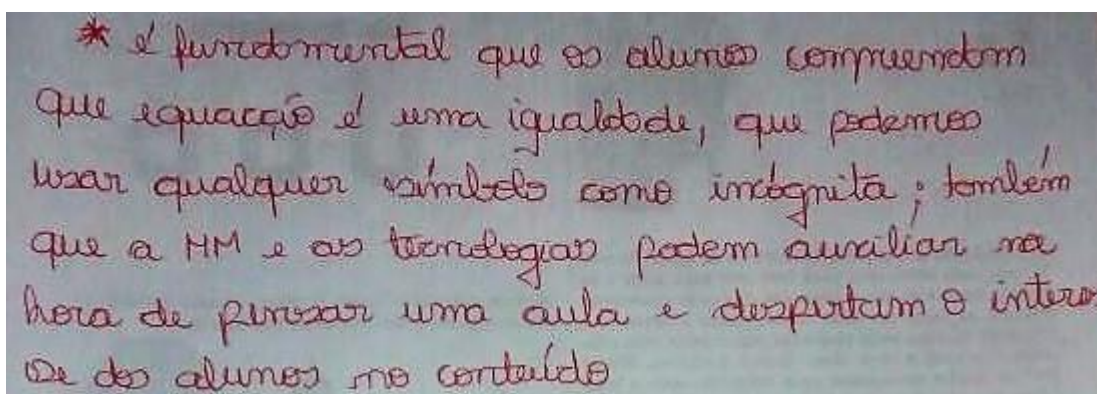 * é fundamental que os alunos compreendam
que equacção é uma igualdade, que podemos
usar qualquer símbolo como incógnita; também
que a HM e as tecnologias podem auxiliar na
hora de pensar uma aula e despertam o interes
se dos alunos no conteúdo